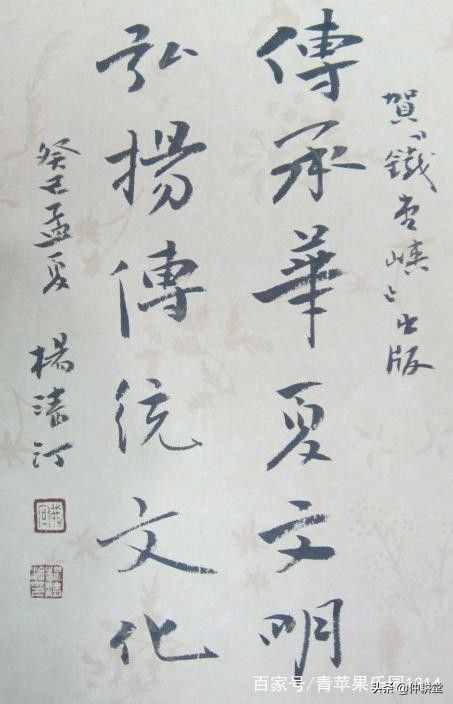 賀鐵出版
傳承華夏文明
弘揚傳統文化
癸巳孟夏 楊清汀
百家号/青苹果乐园1314
头条